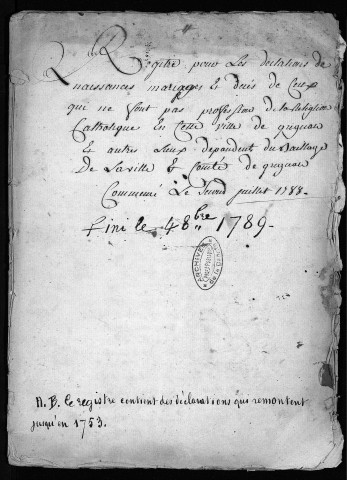 Registre pour Les declations de
naissances mariages & deces de Ceux
qui ne font pas profession de la Religion
Catholique En Cette ville de grignan
& autres Lieux dependent du Bailliage
De La ville & Comté de grignan
Commencé Le juillet 1788.
fini le 4 8.bre 1789.
ARCHIVES
N.B. le registre contient des déclarations qui remontent
jusqu'en 1753.